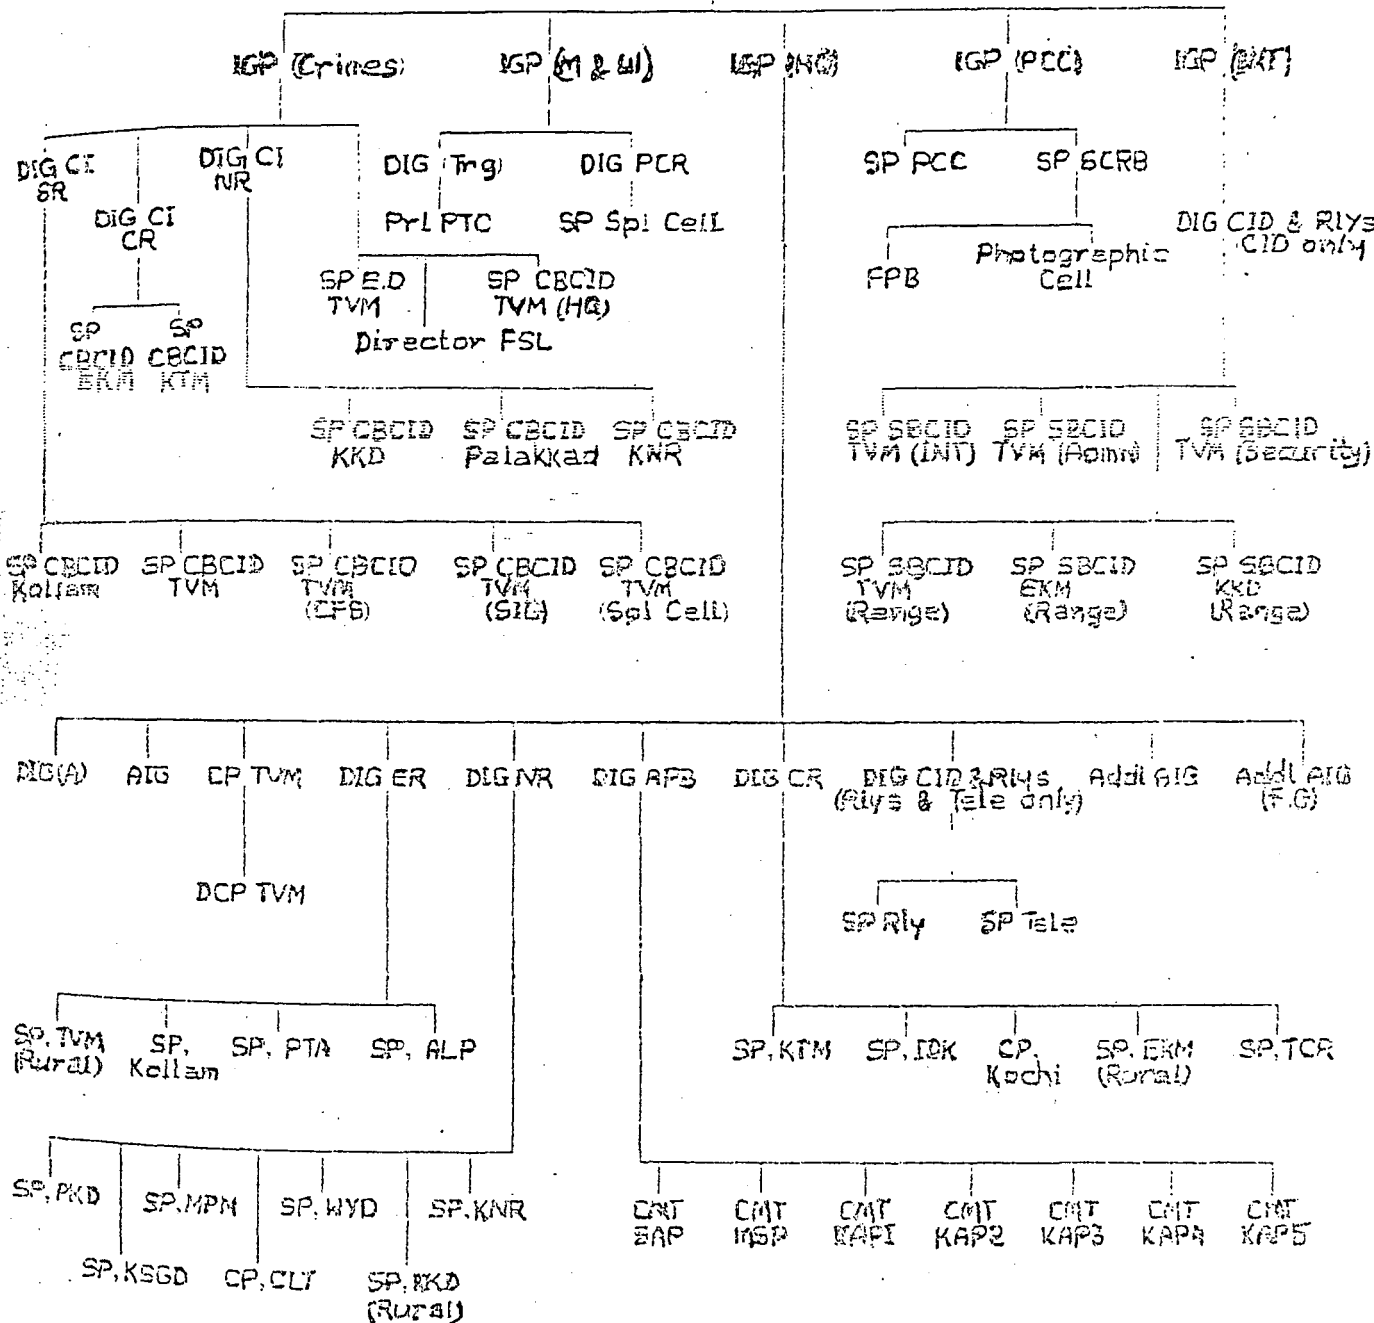 IGP (Crimes)
IGP (M & W)
IGP (HQ)
IGP (PCC)
IGP (INT)
DIG CI
SR
DIG CI
NR
DIG (Trg)
DIG PCR
SP PCC
SP SCRB
DIG CI
CR
Prl PTC
SP Spl Cell
DIG CID & Rlys
CID only
SP E.O
TVM
SP CBCID
TVM (HQ)
FPB
Photographic
Cell
Director FSL
SP
CBCID
EKM
SP
CBCID
KTM
SP CBCID
KKD
SP CBCID
Palakkad
SP CBCID
KNR
SP SBCID
TVM (INT)
SP SBCID
TVM (Admn)
SP SBCID
TVM (Security)
SP CBCID
Kollam
SP CBCID
TVM
SP CBCID
TVM
(CFB)
SP CBCID
TVM
(SIG)
SP CBCID
TVM
(Spl Cell)
SP SBCID
TVM
(Range)
SP SBCID
EKM
(Range)
SP SBCID
KKD
(Range)
DIG(A)
AIG
CP TVM
DIG ER
DIG NR
DIG AFB
DIG CR
DIG CID & Rlys
(Rlys & Tele only)
Addl AIG
Addl AIG
(F.G)
DCP TVM
SP Rly
SP Tele
SP, TVM
(Rural)
SP,
Kollam
SP, PTA
SP, ALP
SP, KTM
SP, IDK
CP,
Kochi
SP, EKM
(Rural)
SP, TCR
SP, PKD
SP, MPM
SP, WYD
SP, KNR
SP, KSGD
CP, CLT
SP, KKD
(Rural)
CMT
SAP
CMT
MSP
CMT
KAP1
CMT
KAP2
CMT
KAP3
CMT
KAP4
CMT
KAP5